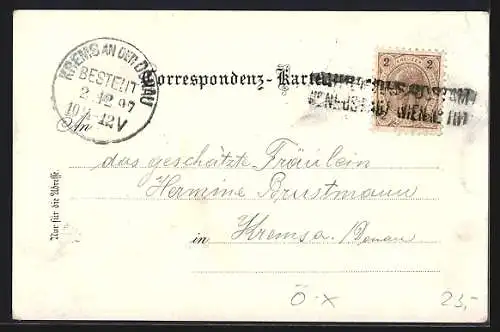 KREMS AN DER DONAU
BESTELLT
2 12 97
Correspondenz-Karte
2 2
An
das geschätzte Fräulein
Hermine Brustmann
in Krems a. /Donau
Nur für die Adresse.
Ö-X
23,-